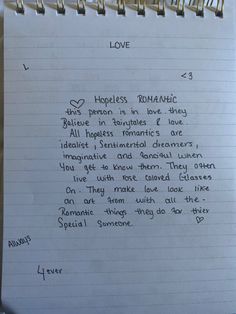 LOVE
L
<3
♡ Hopeless ROMANTIC
this person is in love. they
Believe in fairytales & love.
All hopeless romantics are
idealist, Sentimental dreamers,
imaginative and fanciful when
You get to know them. They often
live with rose colored Glasses
On. They make love look like
an art from with all the -
Romantic things they do for thier
Special Someone. ♡
Allways
4ever